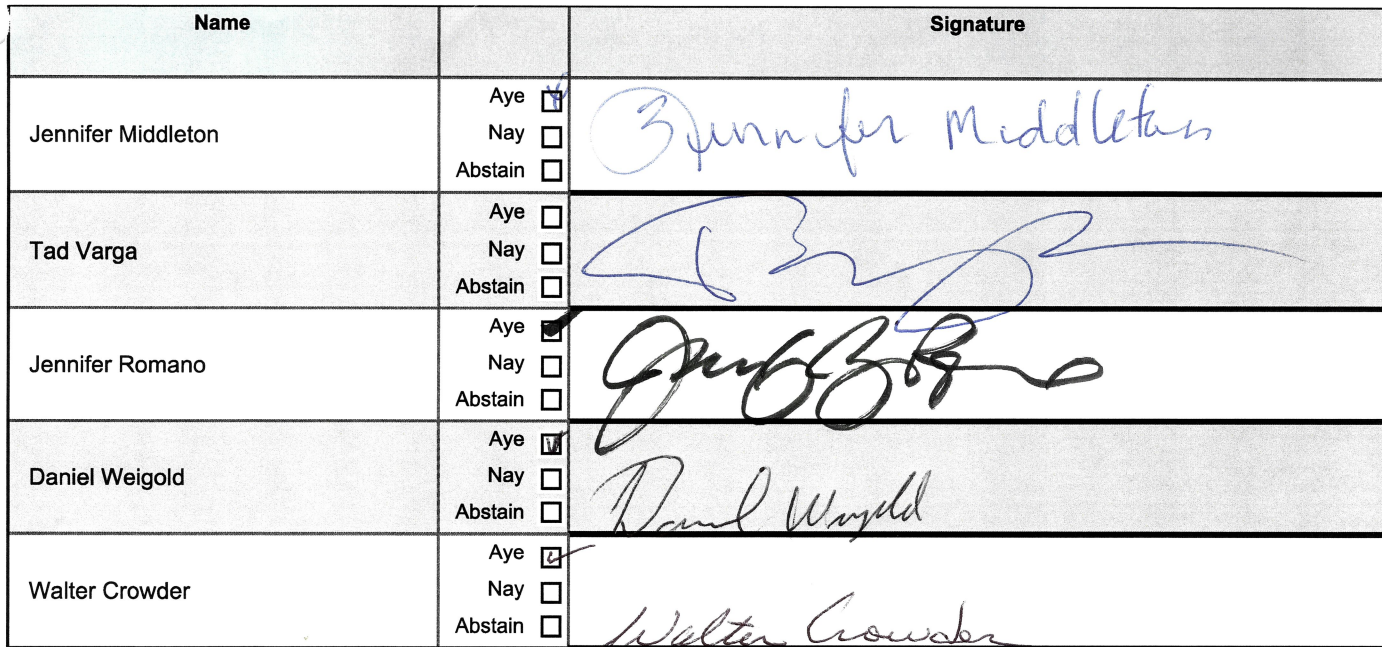 Name Signature
Aye
Jennifer Middleton
Nay
Abstain
3 Jennifer Middleton
Aye
Tad Varga
Nay
Abstain
Aye
Jennifer Romano
Nay
Abstain
Aye
Daniel Weigold
Nay
Abstain
Daniel Weigold
Aye
Walter Crowder
Nay
Abstain
Walter Crowder